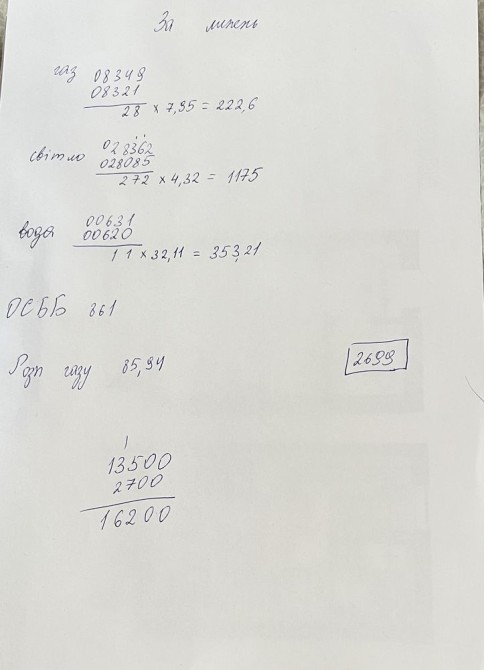 За липень
газ 08349
08321
28 × 7,95 = 222,6
світло 028362
028085
272 × 4,32 = 1175
вода 00631
00620
11 × 32,11 = 353,21
ОСББ 861
Розп газу 85,94
2699
1
13500
2700
16200